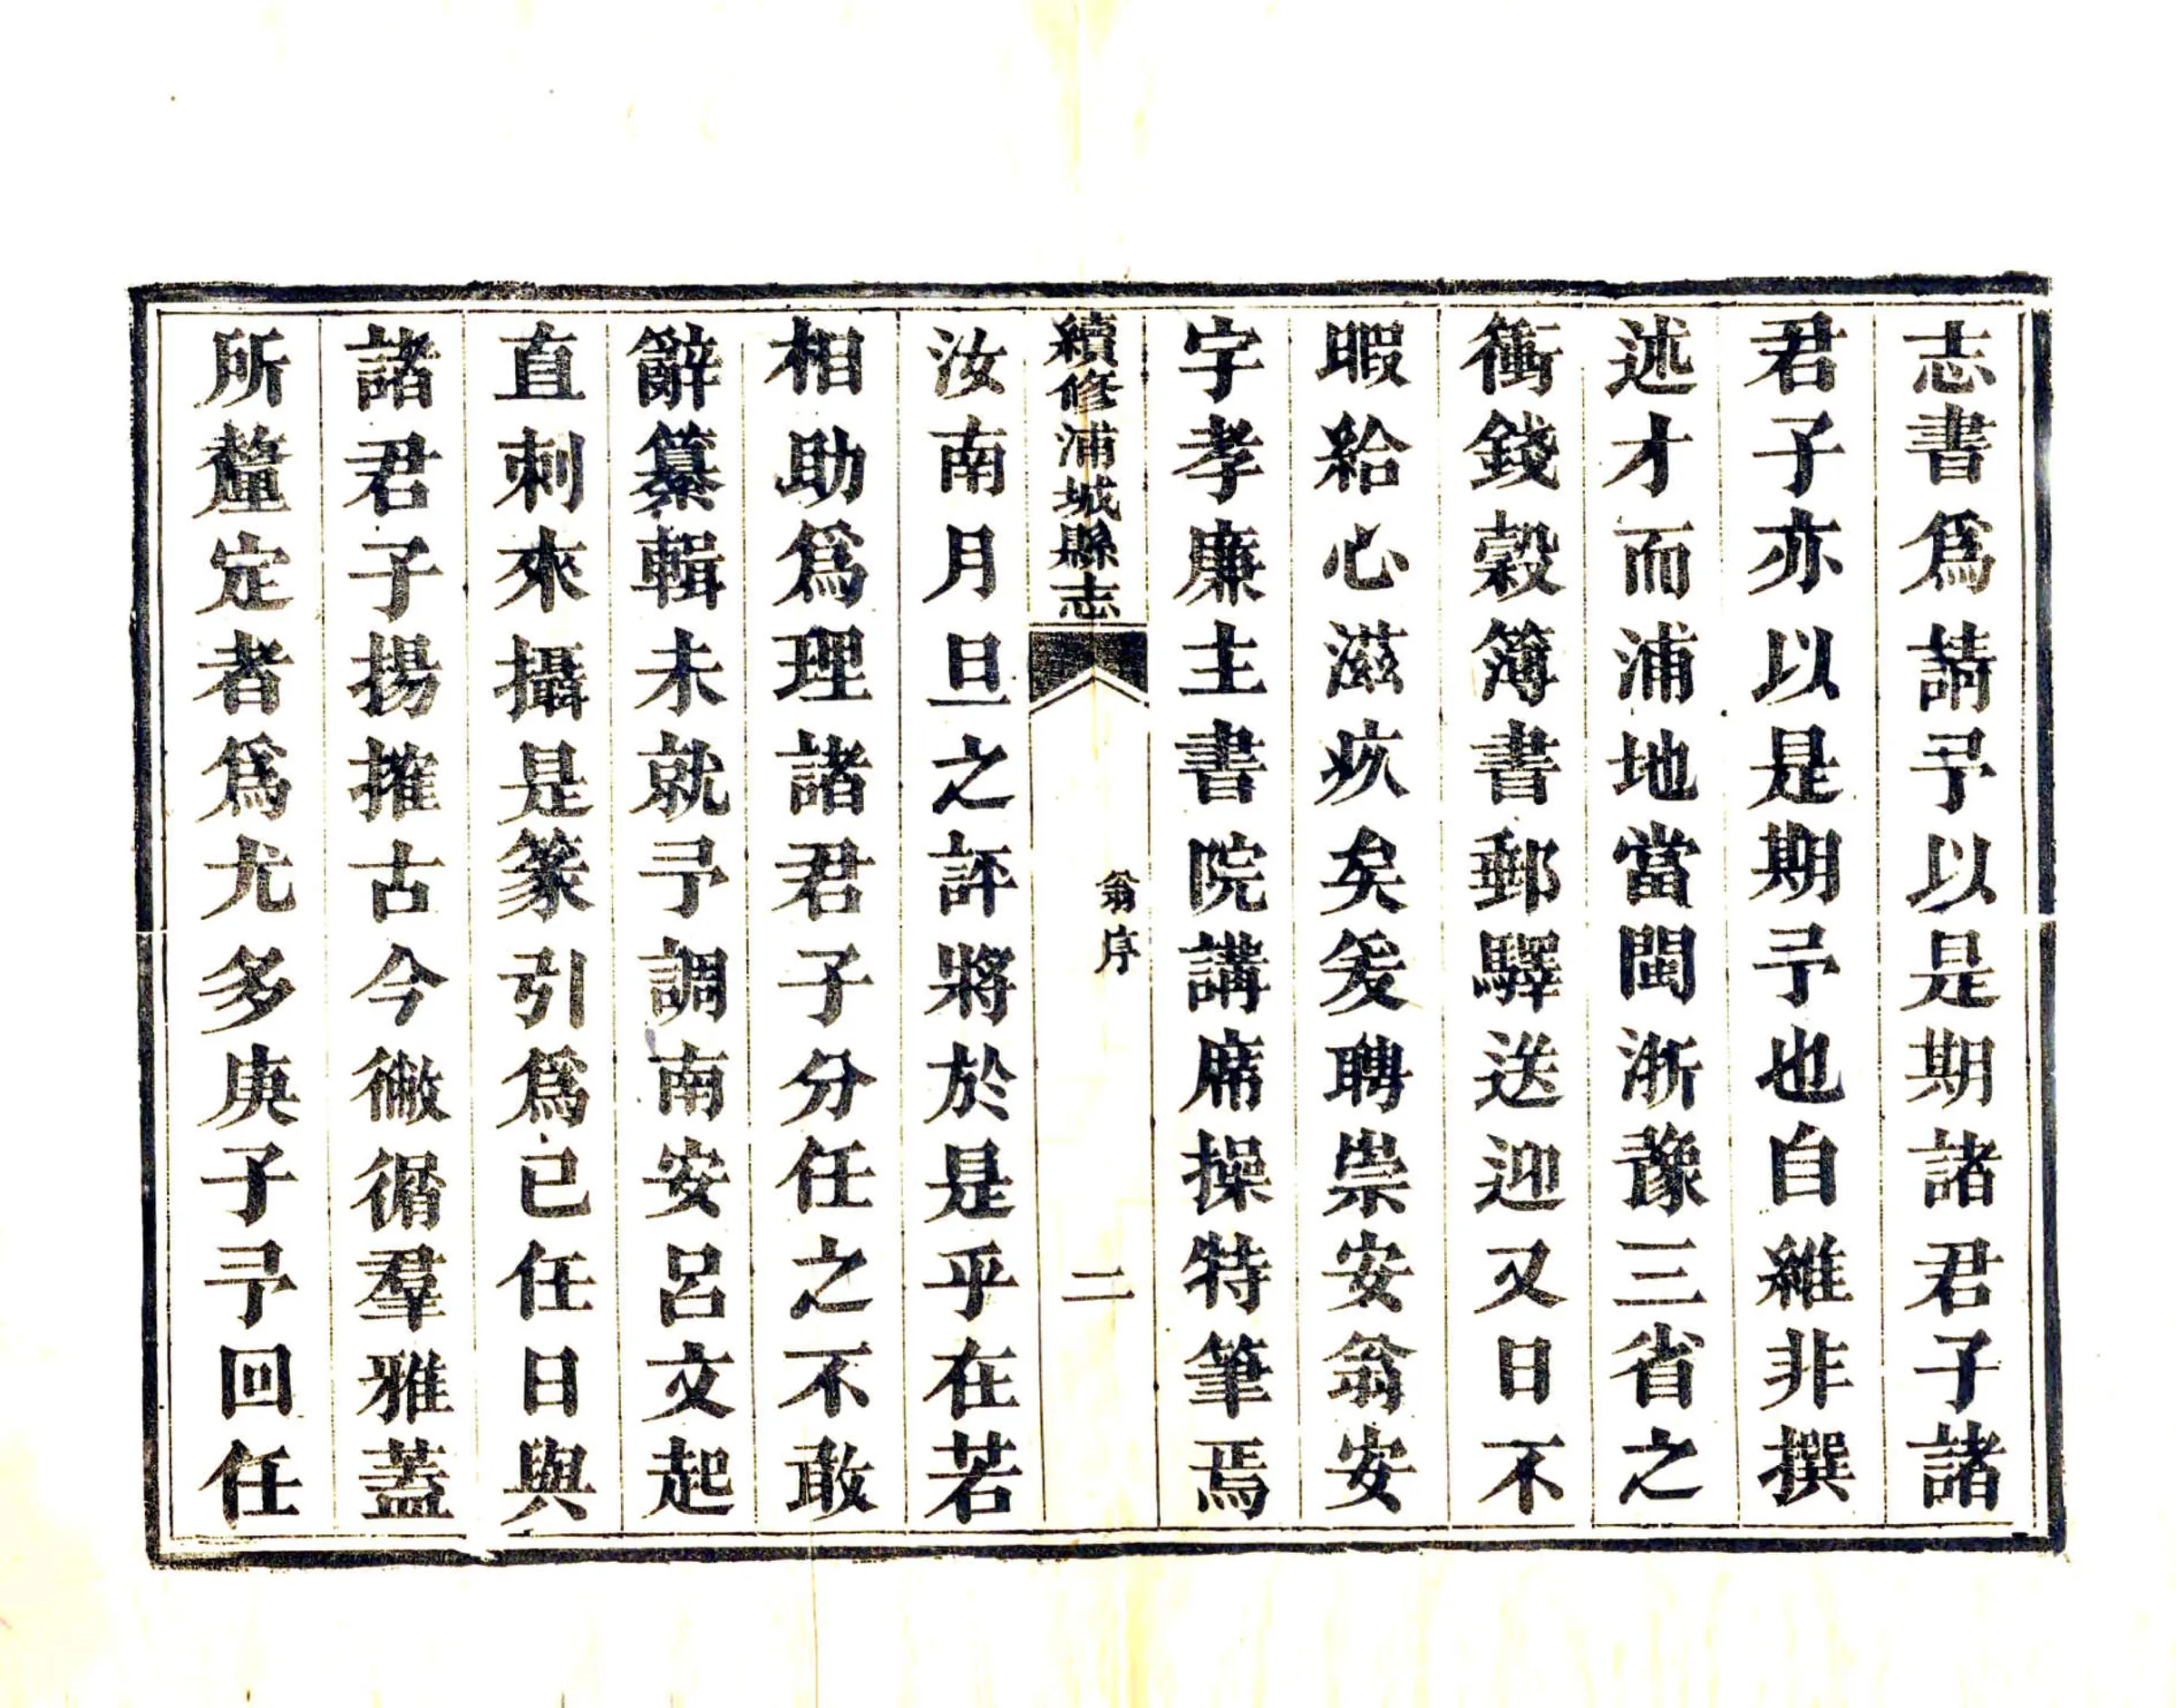 志書爲請予以是期諸君子諸
君子亦以是期予也自維非撰
述才而浦地當閩浙豫三省之
衝錢穀簿書郵驛送迎又日不
暇給心滋疚矣爰聘崇安翁安
字孝廉主書院講席操特筆焉
續修浦城縣志
翁序
二
汝南月旦之評將於是乎在若
相助爲理諸君子分任之不敢
辭纂輯未就予調南安呂文起
直刺來攝是篆引爲已任日與
諸君子揚搉古今徽循羣雅蓋
所釐定者爲尤多庚子予回任